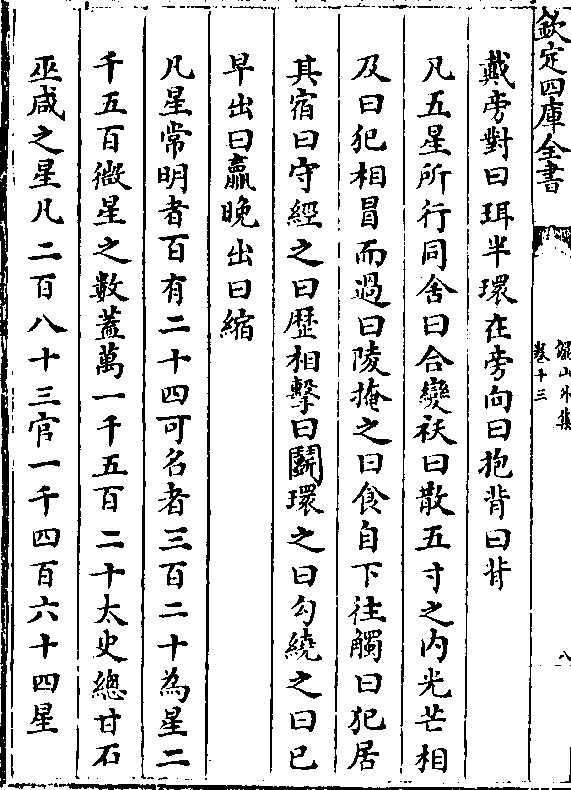 欽定四庫全書
儼山外集
卷十三
八
戴旁對曰珥半環在旁向曰抱背曰背
凡五星所行同舍曰合變祅曰散五寸之内光芒相
及曰犯相冒而過曰陵掩之曰食自下往觸曰犯居
其宿曰守經之曰歴相擊曰鬭環之曰勾繞之曰已
早出曰贏晚出曰縮
凡星常明者百有二十四可名者三百二十為星二
千五百微星之數蓋萬一千五百二十太史總甘石
巫咸之星凡二百八十三官一千四百六十四星